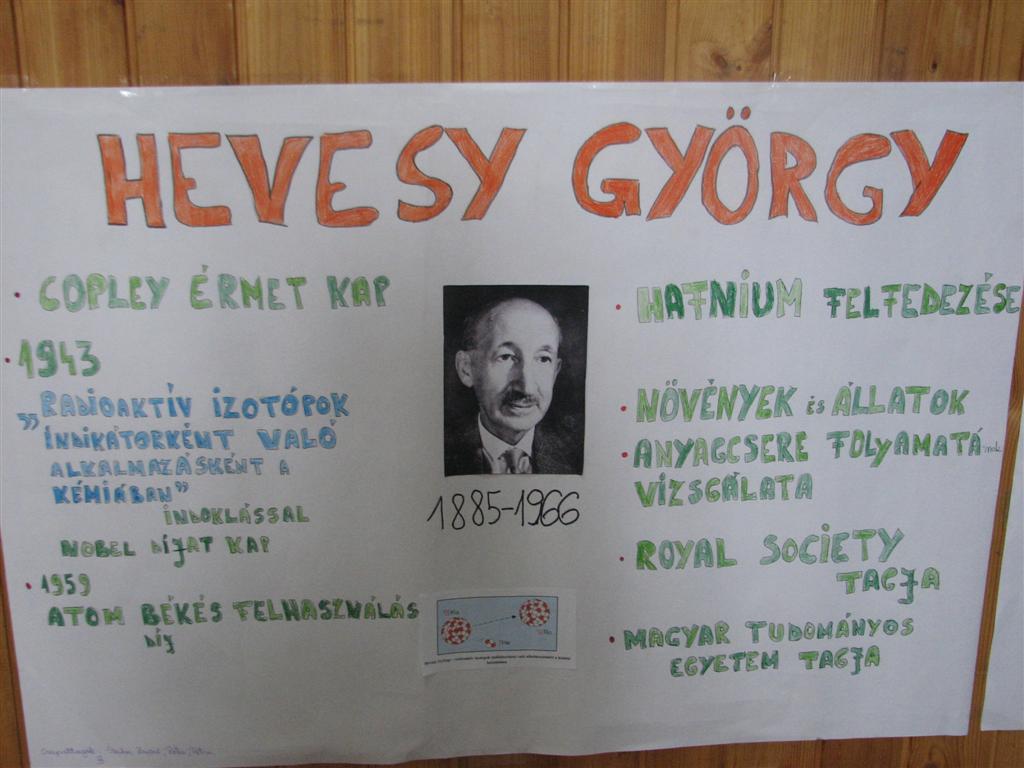 HEVESY GYÖRGY
• COPLEY ÉRMET KAP
• 1943
„RADIOAKTÍV IZOTÓPOK
INDIKÁTORKÉNT VALÓ
ALKALMAZÁSKÉNT A
KÉMIÁBAN”
INDOKLÁSSAL
NOBEL DÍJAT KAP
• 1959
ATOM BÉKÉS FELHASZNÁLÁS
DÍJ
1885-1966
• HAFNIUM FELFEDEZÉSE
• NÖVÉNYEK és ÁLLATOK
• ANYAGCSERE FOLYAMATÁnak
VIZSGÁLATA
• ROYAL SOCIETY
TAGJA
• MAGYAR TUDOMÁNYOS
EGYETEM TAGJA